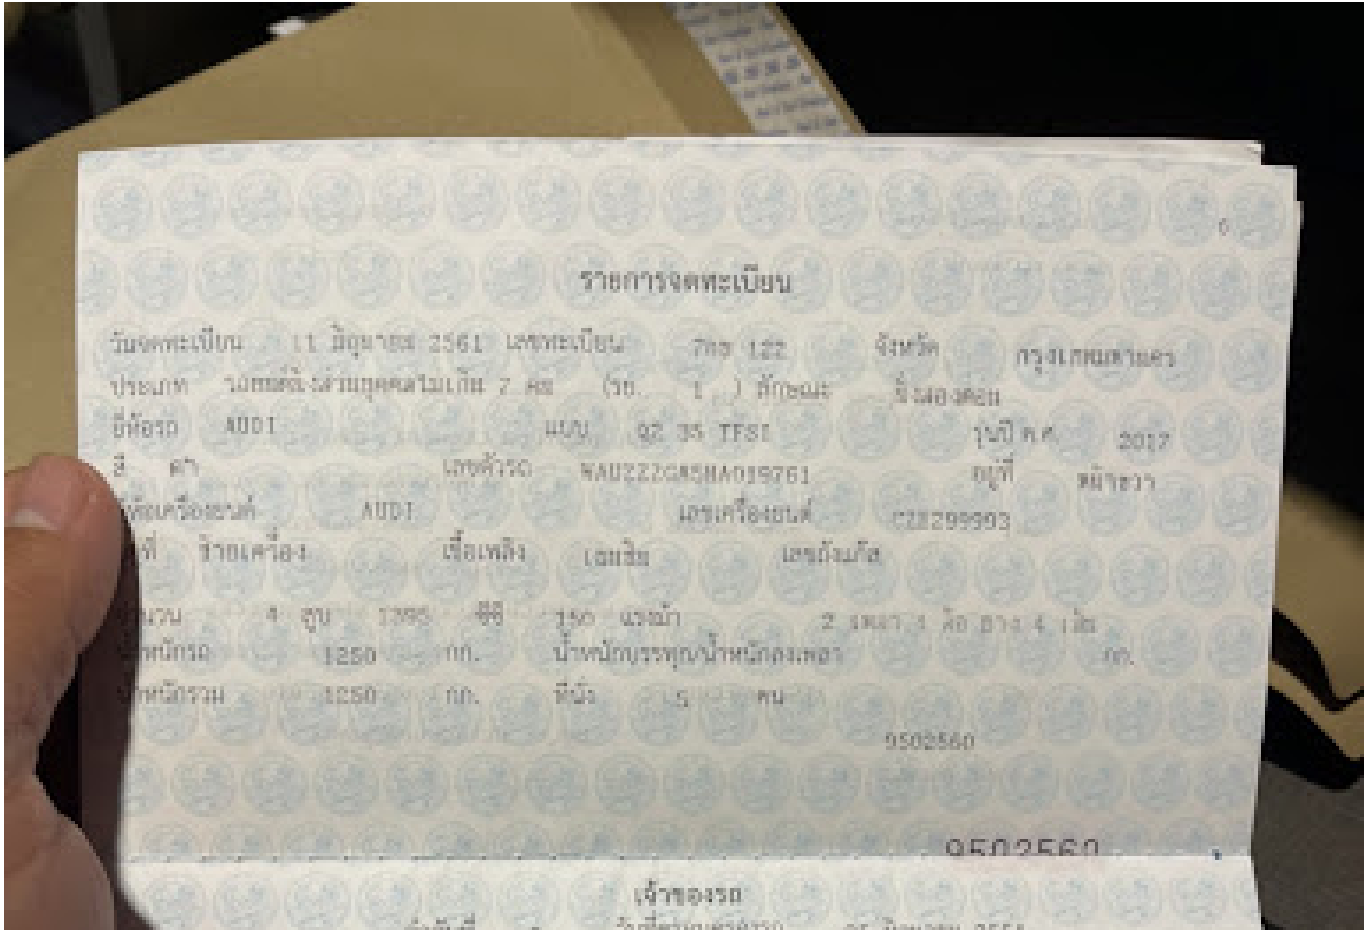 6
รายการจดทะเบียน
วันจดทะเบียน 11 มิถุนายน 2561 เลขทะเบียน 122 จังหวัด กรุงเทพมหานคร
ประเภท รถยนต์นั่งส่วนบุคคลไม่เกิน 7 คน (รย. 1 ) ลักษณะ นั่งสองตอน
ยี่ห้อรถ AUDI แบบ Q2 35 TFSI รุ่นปี ค.ศ. 2017
สี ดำ เลขตัวรถ WAUZZZGA5HA019761 อยู่ที่ หน้าขวา
ยี่ห้อเครื่องยนต์ AUDI เลขเครื่องยนต์
ที่ ซ้ายเครื่อง เชื้อเพลิง เบนซิน เลขถังแก๊ส
จำนวน 4 สูบ 1395 ซีซี 150 แรงม้า 2 เพลา 4 ล้อ ยาง 4 เส้น
น้ำหนักรถ 1250 กก. น้ำหนักบรรทุก/น้ำหนักลงเพลา กก.
น้ำหนักรวม 1250 กก. ที่นั่ง 5 คน
9502560
9502560
เจ้าของรถ
ลำดับที่